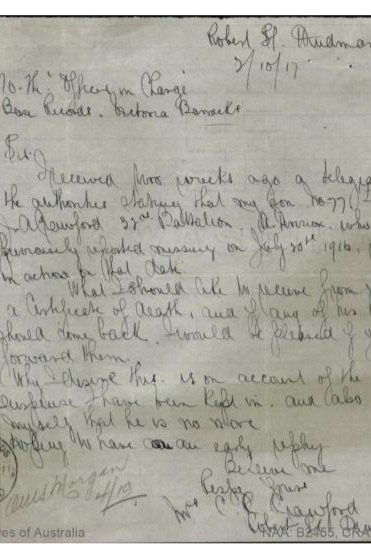 Robert St. Mudman
2/10/17
To The Officer in Charge
Base Records. Victoria Barracks
Sir.
I received two weeks ago a telegr
the authorities stating that my son No 77
Crawford 32nd Battalion, A. Division. who
previously reported missing on July 20th 1916.
in action on that date.
What I should like to receive from y
a Certificate of death, and if any of his
should come back. I would be pleased if y
forward them.
Why I desire this. is on account of the
suspense I have been kept in. and also
myself that he is no more
hoping to have an early reply
Believe me
Yours
Mrs C Crawford
Robert St.
Morgan
4/10
es of Australia
NAA: B2455, CRA